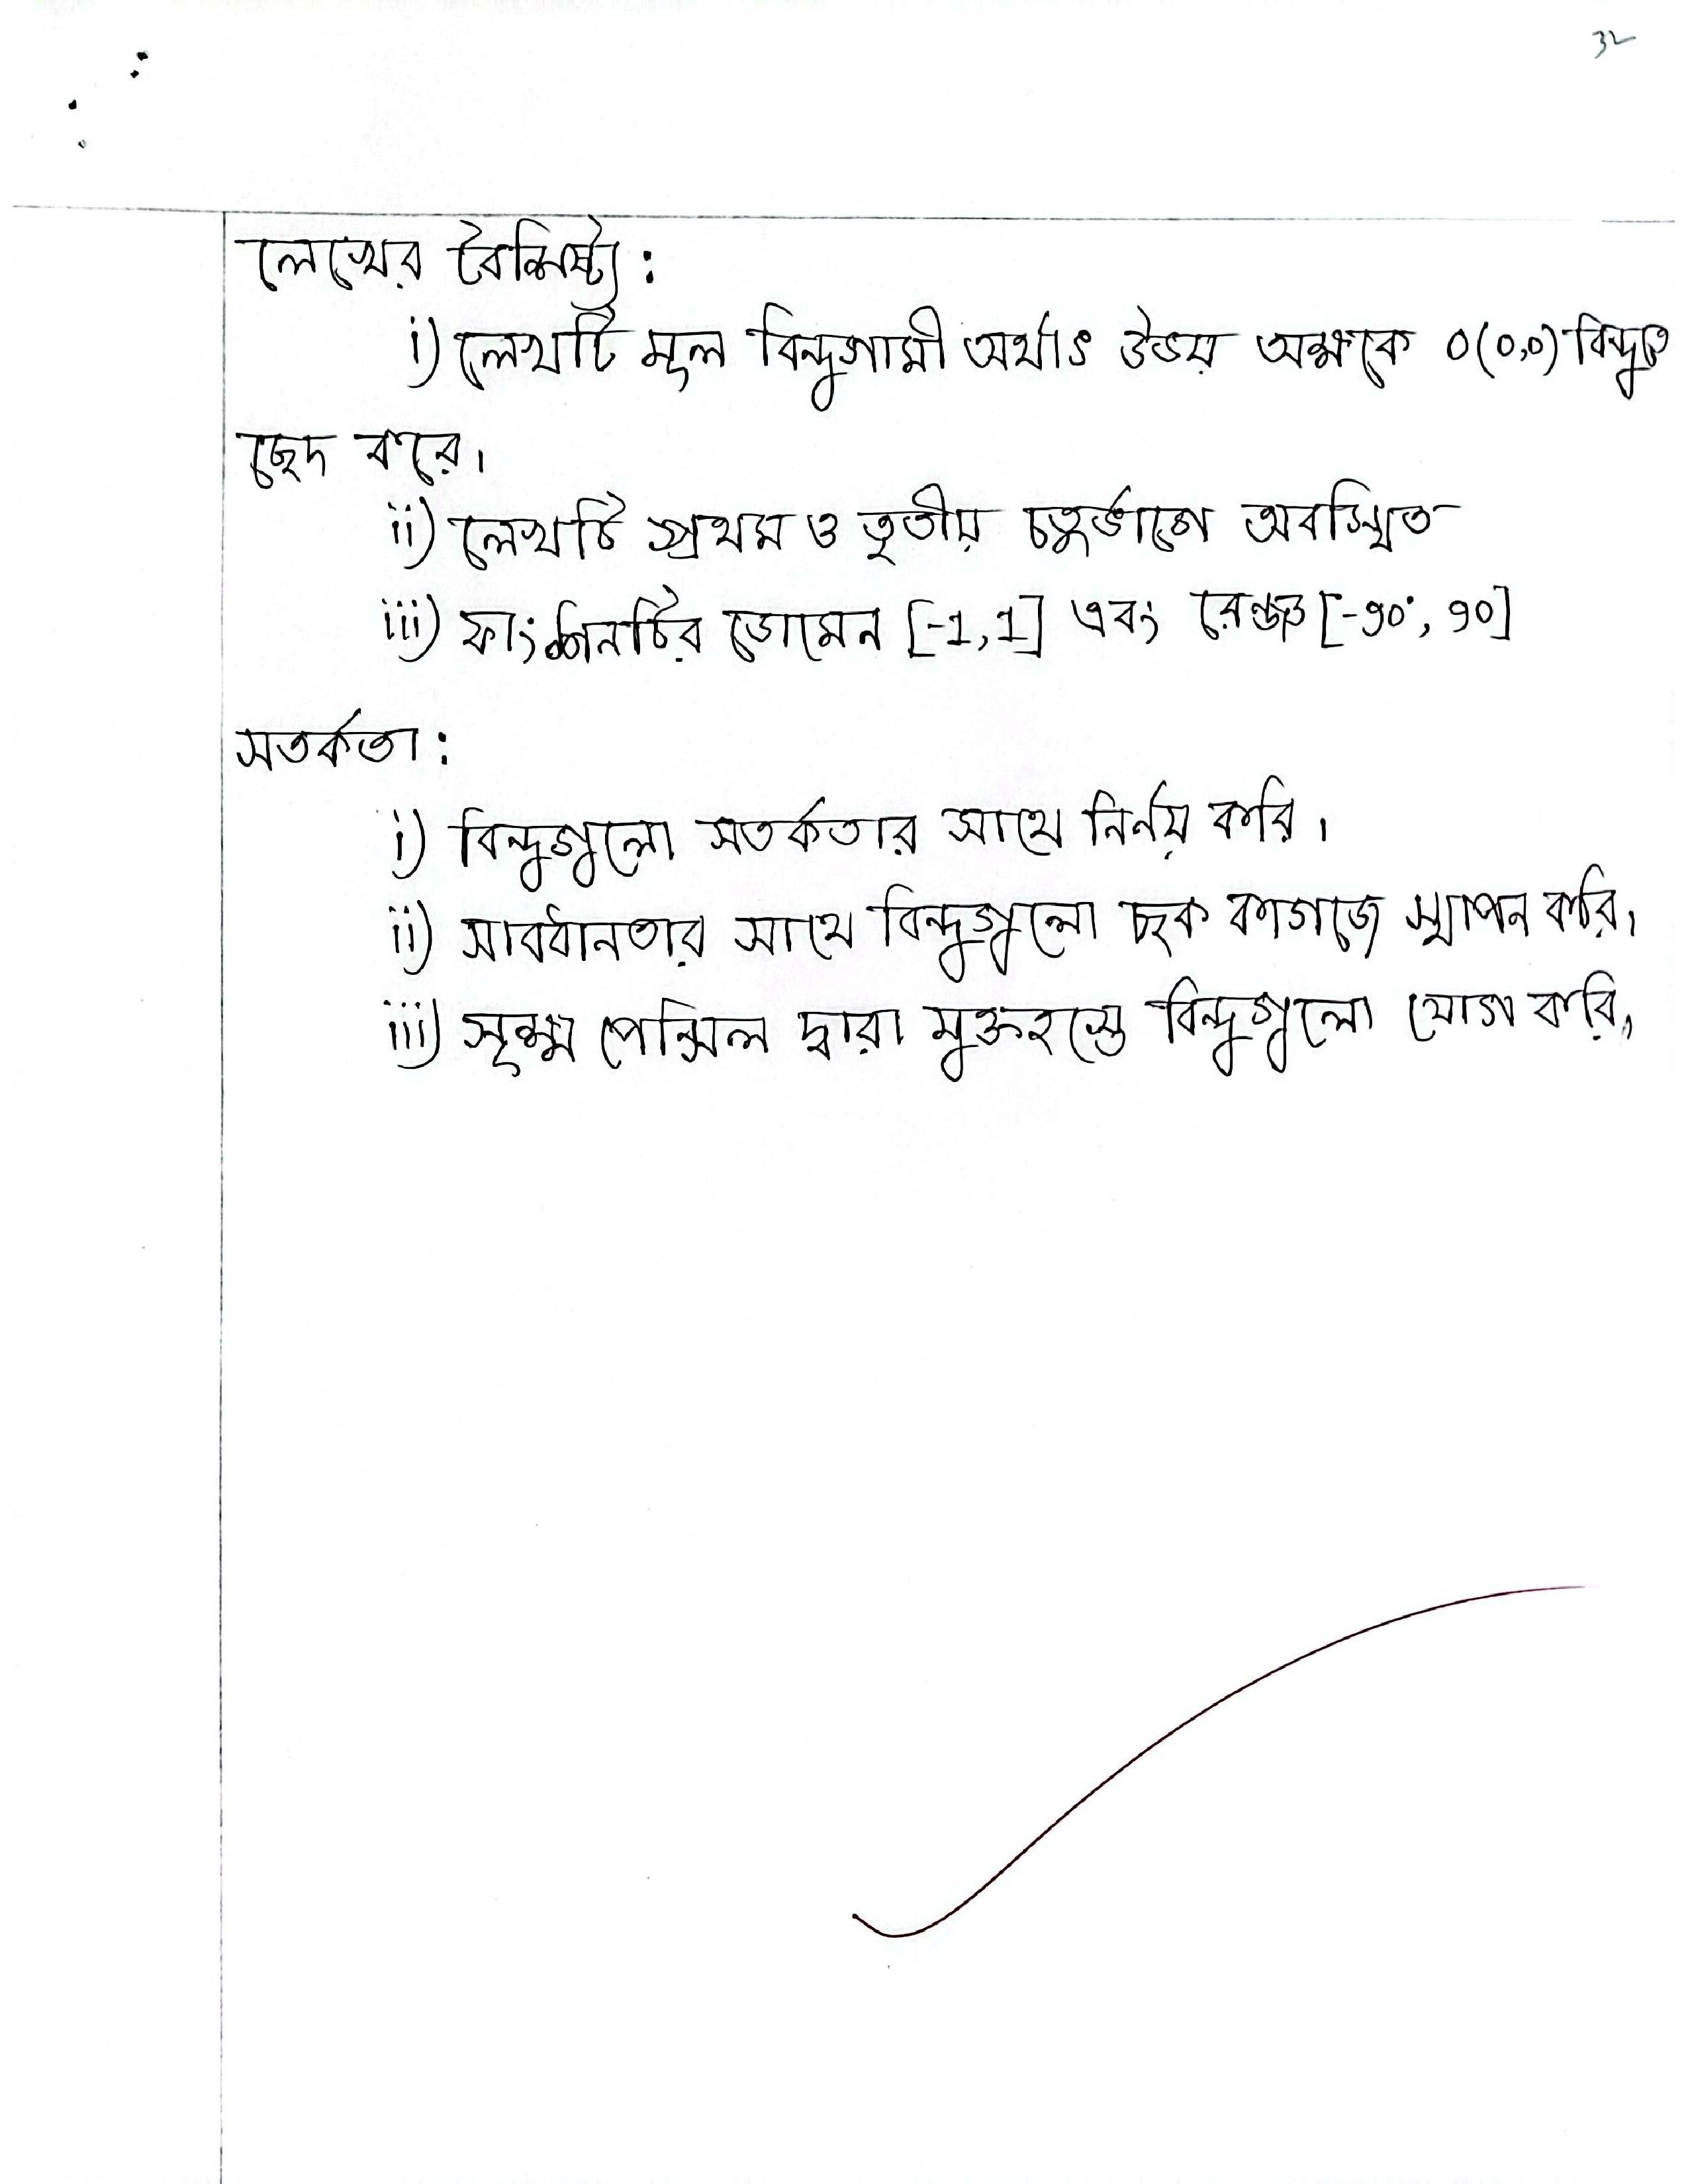 32
লেখের বৈশিষ্ট্য:
i) লেখটি মূল বিন্দুগামী অর্থাৎ উভয় অক্ষকে 0(0,0) বিন্দুতে
ছেদ করে।
ii) লেখটি প্রথম ও তৃতীয় চতুর্ভাগে অবস্থিত
iii) ফাংশনটির ডোমেন [-1,1] এবং রেঞ্জ [-90°, 90]
সতর্কতা:
i) বিন্দুগুলো সতর্কতার সাথে নির্নয় করি।
ii) সাবধানতার সাথে বিন্দুগুলো ছক কাগজে স্থাপন করি।
iii) সূক্ষ্ম পেন্সিল দ্বারা মুক্তহস্তে বিন্দুগুলো যোগ করি।